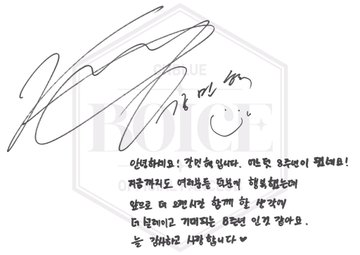 강민혁
CNBLUE
BOICE
안녕하세요! 강민혁입니다. 만으로 8주년이 됐네요!
지금까지도 여러분들 덕분에 행복했는데
앞으로 더 오랜시간 함께 한 생각에
더 설레이고 기대되는 8주년 인것 같아요.
늘 감사하고 사랑합니다 ♥